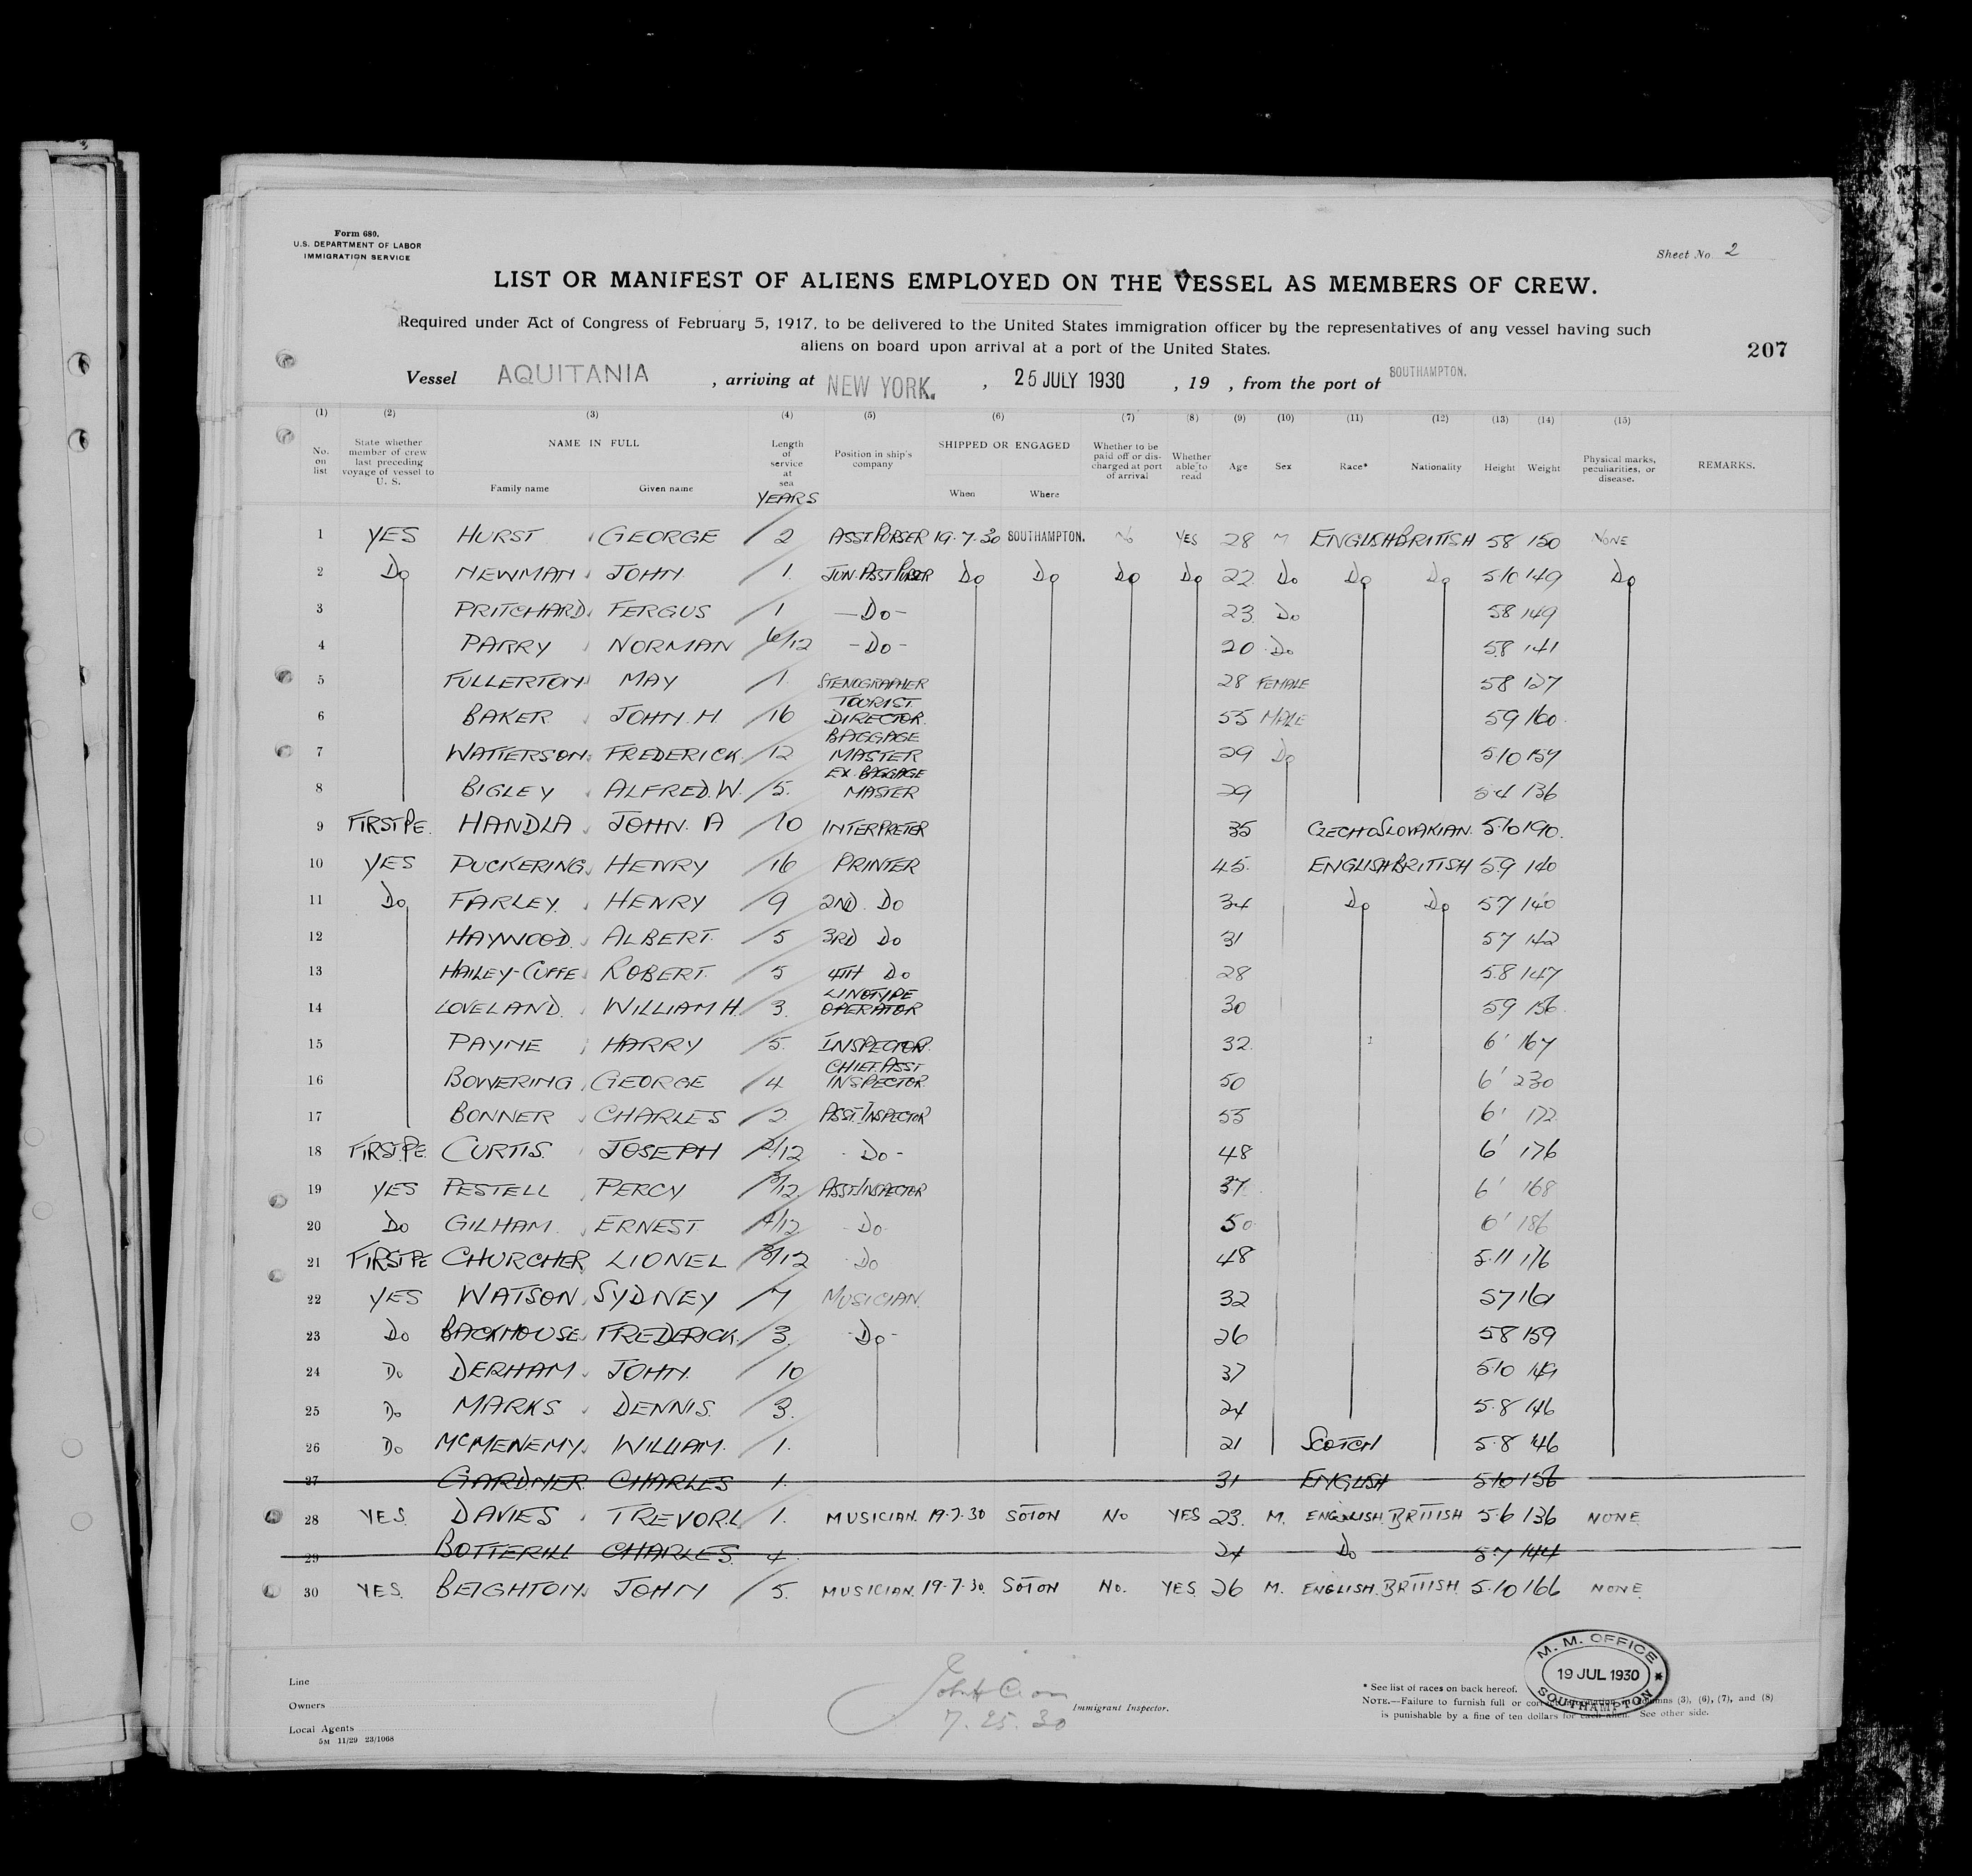 Form 680.
U.S. DEPARTMENT OF LABOR
IMMIGRATION SERVICE
Sheet No 2
LIST OR MANIFEST OF ALIENS EMPLOYED ON THE VESSEL AS MEMBERS OF CREW.
Required under Act of Congress of February 5, 1917, to be delivered to the United States immigration officer by the representatives of any vessel having such
aliens on board upon arrival at a port of the United States.
207
Vessel AQUITANIA , arriving at NEW YORK. , 25 JULY 1930 , 19 , from the port of SOUTHAMPTON.
(1) (2) (3) (4) (5) (6) (7) (8) (9) (10) (11) (12) (13) (14) (15)
No. on list State whether member of crew last preceding voyage of vessel to U. S. NAME IN FULL Family name Given name Length of service at sea YEARS Position in ship's company SHIPPED OR ENGAGED When Where Whether to be paid off or discharged at port of arrival Whether able to read Age Sex Race* Nationality Height Weight Physical marks, peculiarities, or disease. REMARKS.
1 YES HURST GEORGE 2 ASST PURSER 19.7.30 SOUTHAMPTON. No YES 28 M ENGLISH BRITISH 58 150 NONE
2 Do NEWMAN JOHN 1. JUN. ASST PURSER Do Do Do Do 22 Do Do Do 5.10 149 Do
3 PRITCHARD FERGUS 1 -Do- 23 Do 58 149
4 PARRY NORMAN 6/12 -Do- 20 Do 58 141
5 FULLERTON MAY 1. STENOGRAPHER 28 FEMALE 58 127
6 BAKER JOHN. H 16 TOURIST DIRECTOR. 55 MALE 59 160
7 WATTERSON FREDERICK. 12 BAGGAGE MASTER 29 Do 5.10 157
8 BIGLEY ALFRED. W. 5. EX. BAGGAGE MASTER 29 5.4 136
9 FIRST PE. HANDLA JOHN. A 10 INTERPRETER 35 CZECHOSLOVAKIAN. 5.10 190.
10 YES PUCKERING HENRY 16 PRINTER 45. ENGLISH BRITISH 5.9 140
11 Do FARLEY. HENRY 9 2ND. Do 34 Do Do 57 140
12 HAYWOOD. ALBERT. 5 3RD Do 31 57 142
13 HAILEY-CUFFE ROBERT. 5 4TH Do 28 5.8 147
14 LOVELAND. WILLIAM H. 3. LINOTYPE OPERATOR 30 59 156
15 PAYNE HARRY 5. INSPECTOR. 32. 6' 167
16 BOWERING GEORGE 4 CHIEF. ASST INSPECTOR. 50 6' 230
17 BONNER CHARLES 2 ASST. INSPECTOR 55 6' 172
18 FIRST. PE. CURTIS. JOSEPH /12 -Do- 48 6' 176
19 YES PESTELL PERCY /12 ASST. INSPECTOR 37. 6' 168
20 Do GILHAM. ERNEST. /12 Do 50 6' 186
21 FIRST PE CHURCHER LIONEL /12 Do 48 5.11 176
22 YES WATSON SYDNEY 7 MUSICIAN. 32 57 161
23 Do BACKHOUSE FREDERICK. 3. -Do- 26 58 159
24 Do DERHAM JOHN. 10 37 5.10 149
25 Do MARKS DENNIS. 3. 24 5.8 146
26 Do McMENEMY. WILLIAM. 1. 21 SCOTCH 5.8 146
27 GARDNER CHARLES 1. 31 ENGLISH 5.10 156
28 YES. DAVIES TREVOR.L 1. MUSICIAN. 19.7.30 SOTON No YES 23. M. ENGLISH. BRITISH 5.6 136 NONE
29 BOTTERILL CHARLES. 4 24 Do 5.7 144
30 YES. BEIGHTON JOHN 5. MUSICIAN. 19.7.30. SOTON No. YES 26 M. ENGLISH. BRITISH. 5.10 166 NONE
Line
Owners
Local Agents
5M 11/29 23/1068
7. 25. 30
Immigrant Inspector.
M. M. OFFICE
19 JUL 1930
SOUTHAMPTON
* See list of races on back hereof.
NOTE.—Failure to furnish full or columns (3), (6), (7), and (8)
is punishable by a fine of ten dollars for each alien. See other side.